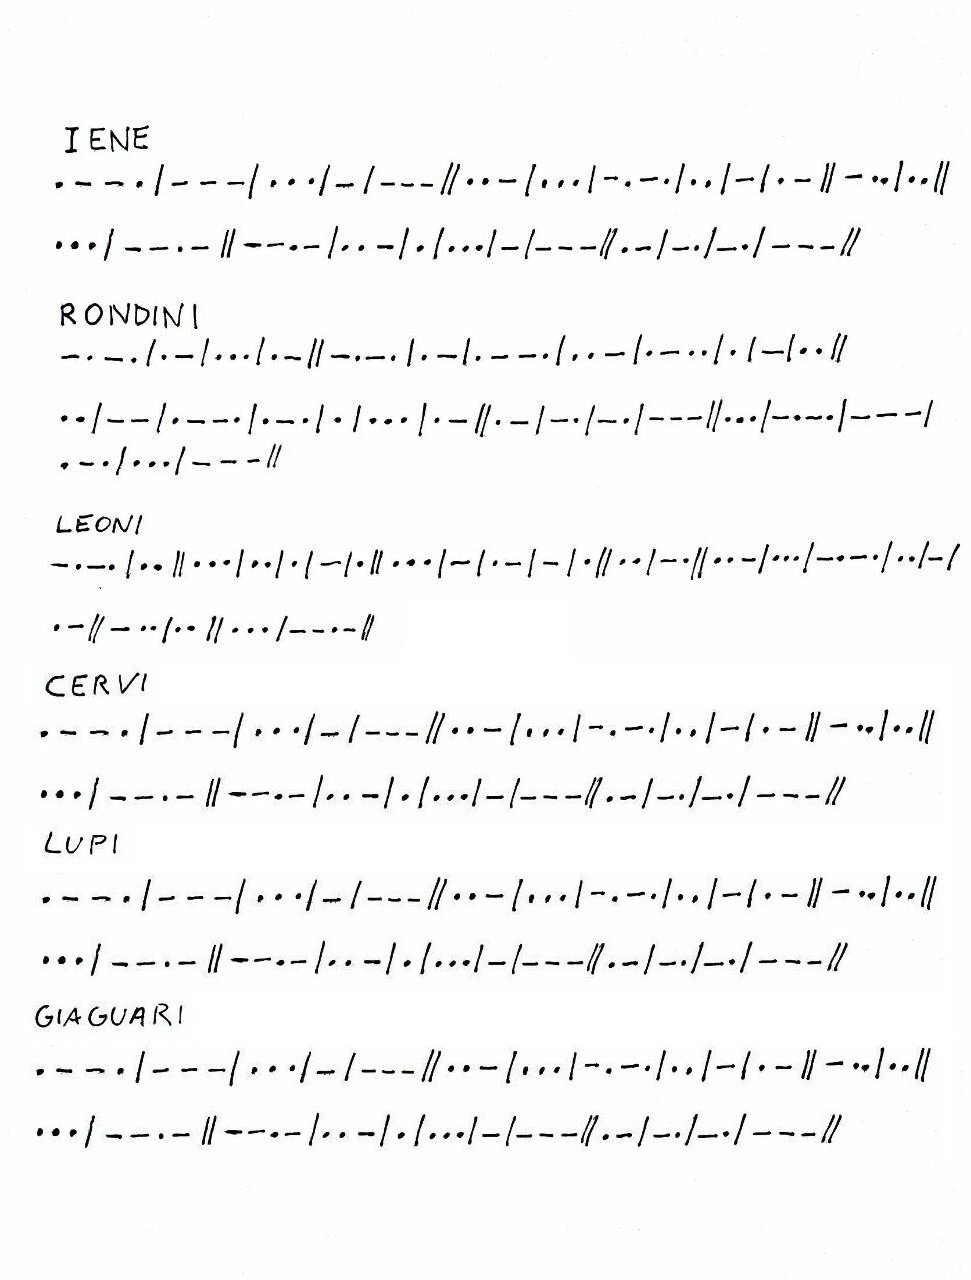 IENE
.--./---/.../-/---//..-/.../-.-./../-/.-//-../..//
.../--.-//--.-/..-/./.../-/---//.-/-./-./---//
RONDINI
-.-./.-/.../.-//-.-./.-/.--./..-/.-.././-/..//
../--/.--./.-././.../.-//.-/-./-./---//.../-.-./---/
.-./.../---//
LEONI
-.-./..//.../.././-/.//.../-/.-/-/.//../-.//..-/.../-.-./../-/
.-//-../..//.../--.-//
CERVI
.--./---/.../-/---//..-/.../-.-./../-/.-//-../..//
.../--.-//--.-/..-/./.../-/---//.-/-./-./---//
LUPI
.--./---/.../-/---//..-/.../-.-./../-/.-//-../..//
.../--.-//--.-/..-/./.../-/---//.-/-./-./---//
GIAGUARI
.--./---/.../-/---//..-/.../-.-./../-/.-//-../..//
.../--.-//--.-/..-/./.../-/---//.-/-./-./---//